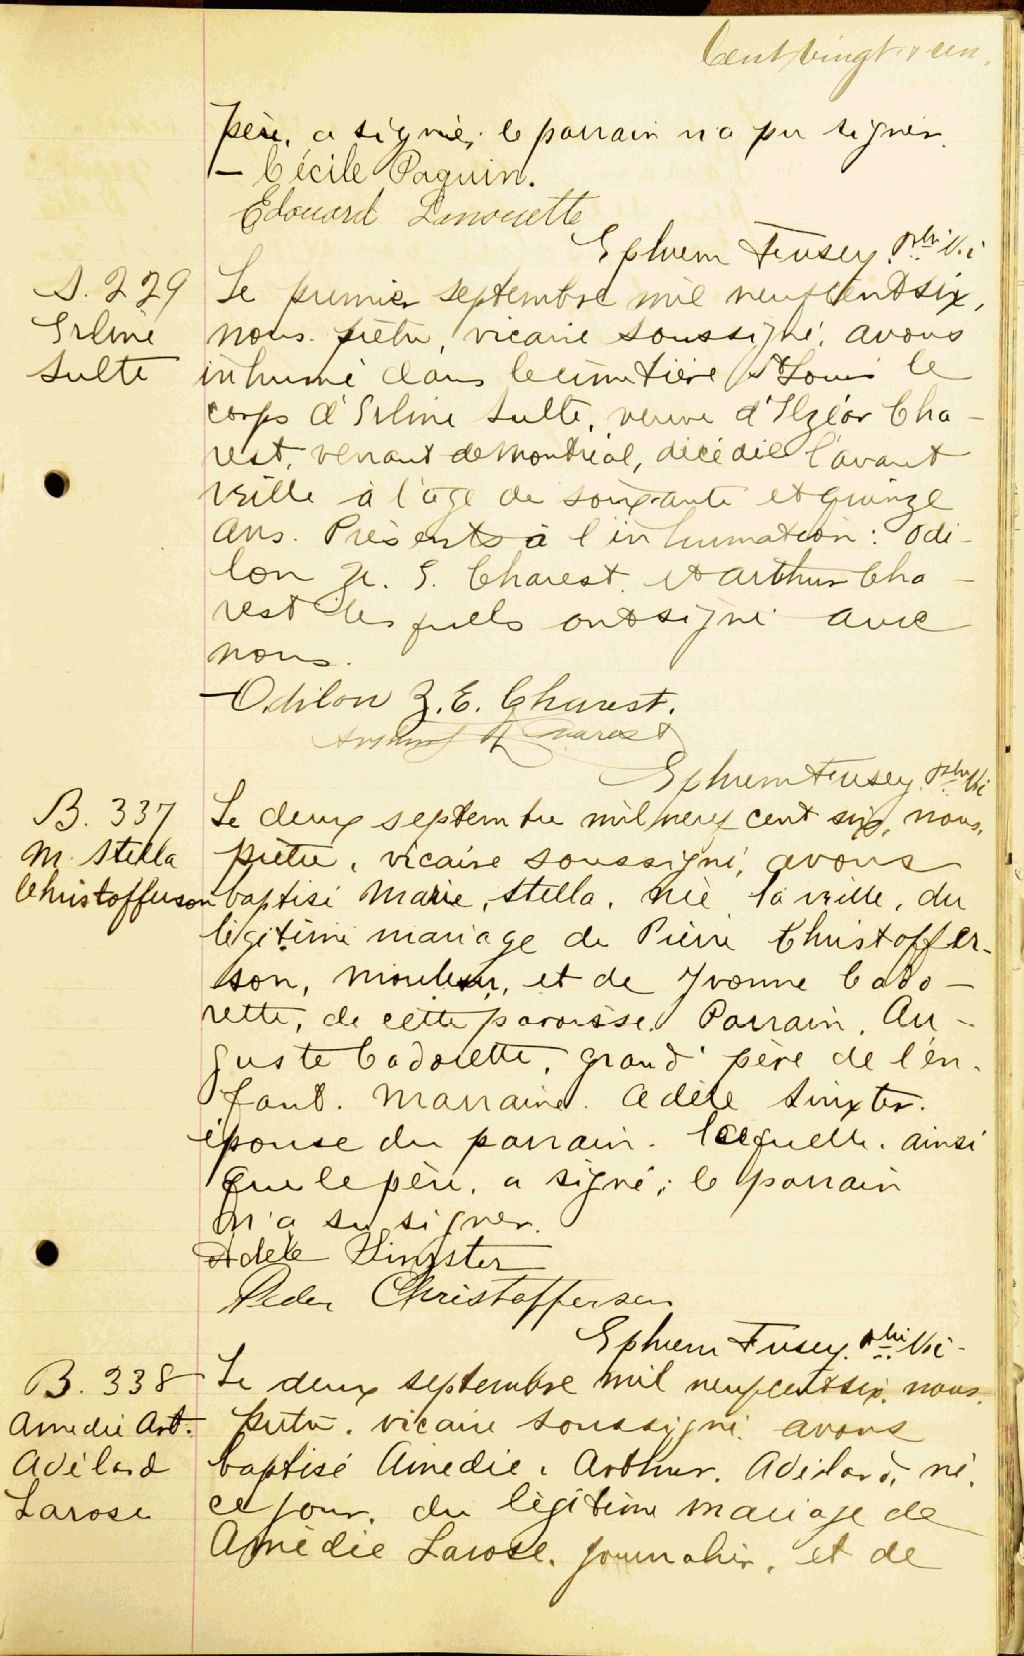 Cent vingt et un.
père, a signé; le parrain n'a pu signer.
– Cécile Paquin.
Edouard Lanouette
Ephrem Fusey. ptre Vic
S. 229
Erline
Sulte
Le premier septembre mil neuf cent six,
nous prêtre, vicaire soussigné, avons
inhumé dans le cimetière St Louis le
corps d'Erline Sulte, veuve d'Elzéar Cha-
rest, venant de Montréal, décédée l'avant
veille à l'âge de soixante et quinze
ans. Présents à l'inhumation: Odi-
lon Z. E. Charest et Arthur Cha-
rest lesquels ont signé avec
nous.
– Odilon Z. E. Charest.
Arthur Charest
Ephrem Fusey ptre Vic
B. 337
M. Stella
Christofferson
Le deux septembre mil neuf cent six, nous,
prêtre, vicaire soussigné, avons
baptisé Marie, Stella, née la veille, du
légitime mariage de Pierre Christoffer-
son, mouleur, et de Yvonne Cado-
rette, de cette paroisse. Parrain, Au-
guste Cadorette, grand' père de l'en-
fant. Marraine. Adèle
épouse du parrain. laquelle. ainsi
que le père, a signé; le parrain
n'a su signer.
Adèle
Peder Christoffersen
Ephrem Fusey. ptre Vic
B. 338
Amédée Art.
Adélard
Larose
Le deux septembre mil neuf cent six, nous,
prêtre, vicaire soussigné, avons
baptisé Amédée, Arthur, Adélard, né
ce jour, du légitime mariage de
Amédée Larose, journalier, et de